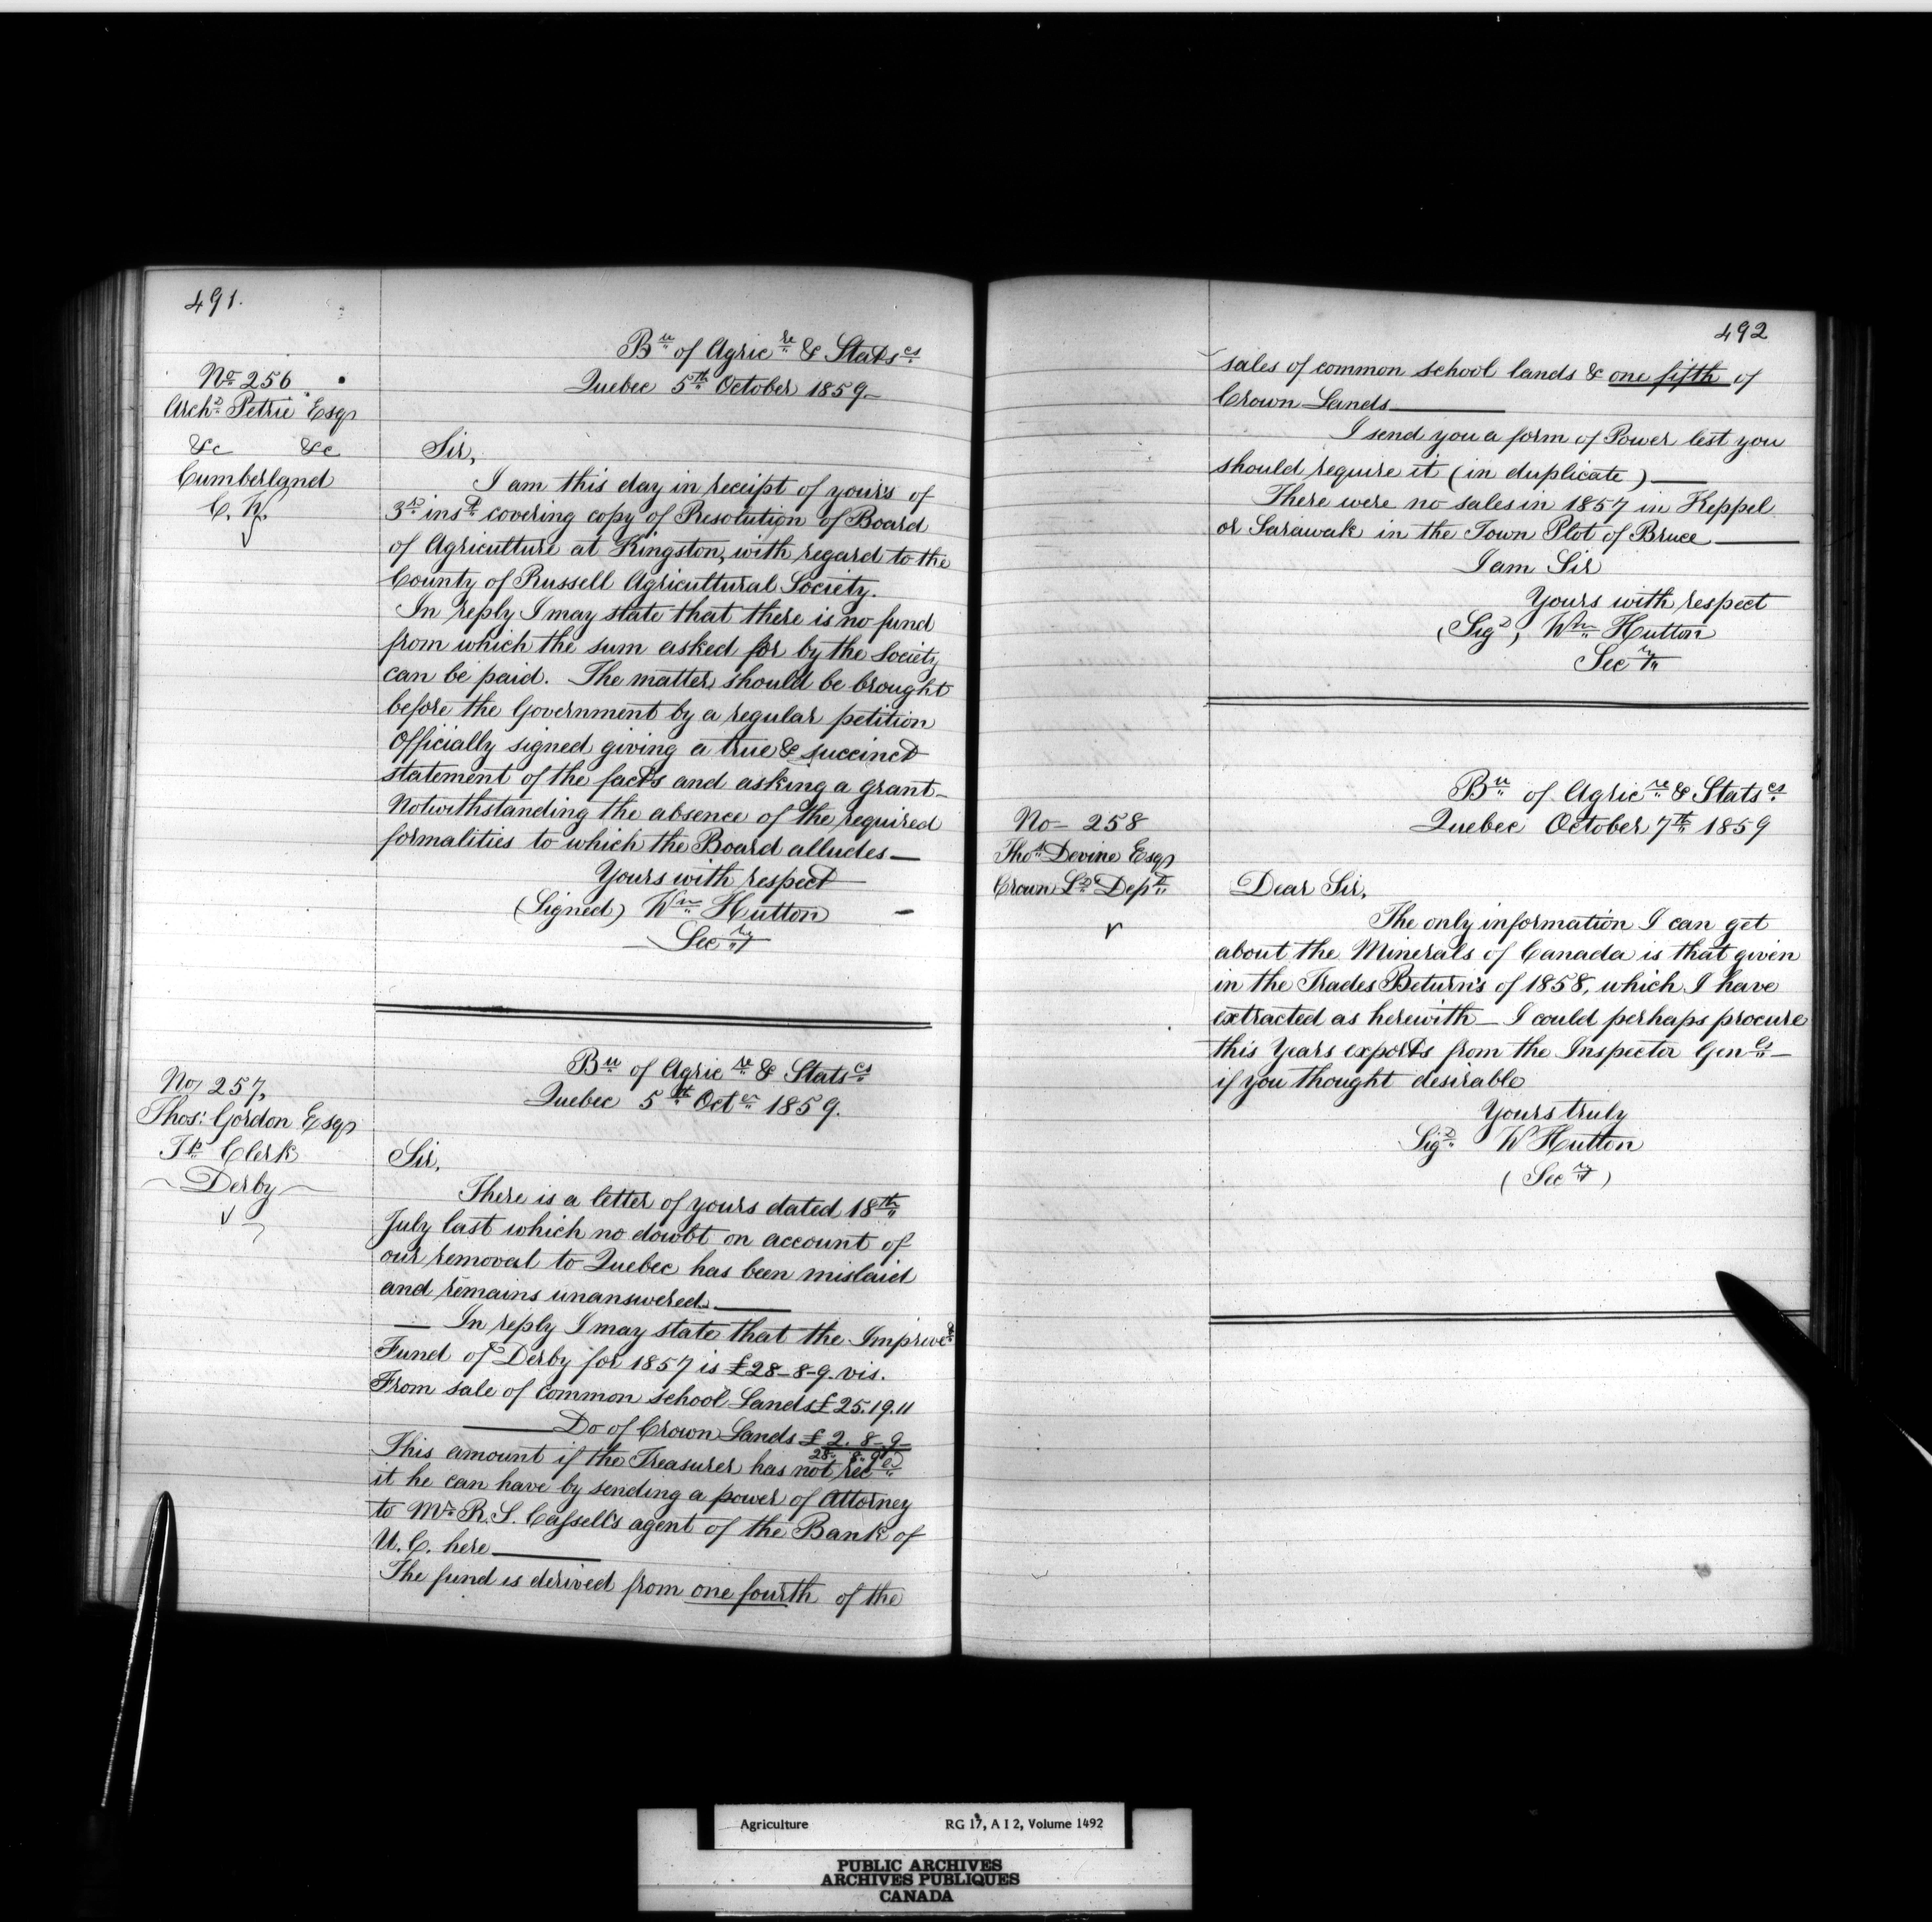 491.
No 256
Archd Petrie Esqr
&c &c
Cumberland
C. W.
Bu of Agricre & Statscs
Quebec 5th October 1859
Sir,
I am this day in receipt of yours of
3rd inst covering copy of Resolution of Board
of Agriculture at Kingston, with regard to the
County of Russell Agricultural Society.
In reply I may state that there is no fund
from which the sum asked for by the Society
can be paid. The matter should be brought
before the Government by a regular petition
Officially signed giving a true & succinct
statement of the facts and asking a grant—
Notwithstanding the absence of the required
formalities to which the Board alludes—
Yours with respect
(Signed) Wm Hutton
Secry
No 257,
Thos: Gordon Esqr
Tp Clerk
Derby
Bu of Agricre & Statscs
Quebec 5th Octer 1859.
Sir,
There is a letter of yours dated 18th
July last which no doubt on account of
our removal to Quebec has been mislaid
and remains unanswered.—
— In reply I may state that the Improvet
Fund of Derby for 1857 is £28-8-9. vis.
From sale of common school Lands £25.19.11
— Do of Crown Lands £2. 8-9
28. 8. 9
This amount if the Treasurer has not recd
it he can have by sending a power of Attorney
to Mr R. S. Cassells agent of the Bank of
U. C. here—
The fund is derived from one fourth of the
492
sales of common school lands & one fifth of
Crown Lands—
I send you a form of Power lest you
should require it (in duplicate)—
There were no sales in 1857 in Keppel
or Sarawak in the Town Plot of Bruce—
I am Sir
Yours with respect
(Sigd) Wm Hutton
Secry
No— 258
Thos Devine Esqr
Crown Ld Dept
Bu of Agricre & Statscs
Quebec October 7th 1859
Dear Sir,
The only information I can get
about the Minerals of Canada is that given
in the Trades Returns of 1858, which I have
extracted as herewith— I could perhaps procure
this Years exports from the Inspector Genls—
if you thought desirable
Yours truly
Sigd W Hutton
(Secry)
Agriculture RG 17, A I 2, Volume 1492
PUBLIC ARCHIVES
ARCHIVES PUBLIQUES
CANADA